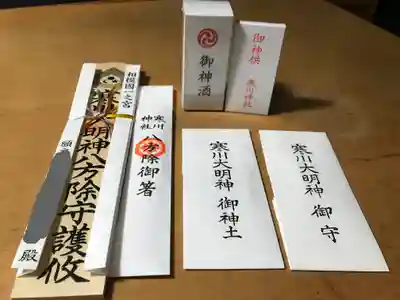 相模國一之宮
寒川大明神八方除守護攸
願主
殿
寒川神社
八方除御箸
御神酒
御神供
寒川神社
寒川大明神 御神土
寒川大明神 御守